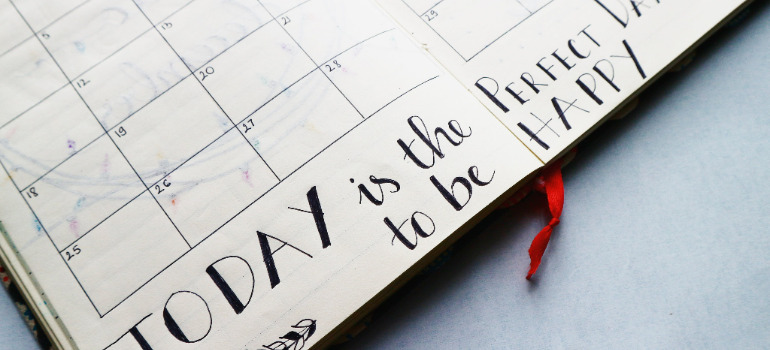 5
12 13
18 19 20 21
25 26 27 28
TODAY is the
to be
29
PERFECT DAY
HAPPY